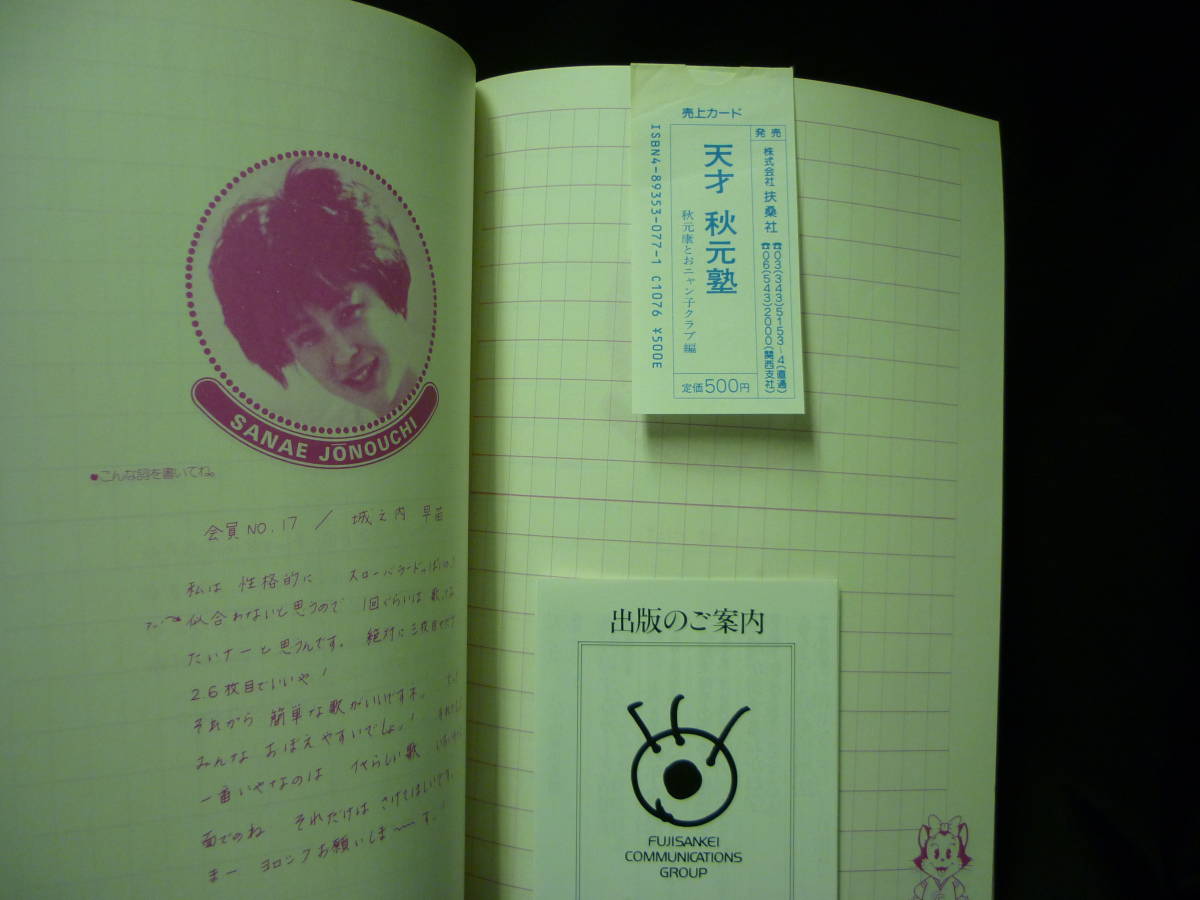 SANAE JŌNOUCHI
●こんな詞を書いてね。
会員NO.17 / 城之内 早苗
私は 性格的に スローバラードっぽいの
似合わないと思うので 1回ぐらいは 歌って
たいナーと思うんです。 絶対に三枚目だけ
26枚目でいいや!
それから 簡単な歌がいいですネ。
みんな おぼえやすいでしょ!
一番いやなのは 代らしい歌
面でのね それだけは さけてほしいです。
まー ヨロシクお願いしま〜す!
売上カード
発売
株式会社 扶桑社
☎03(343)5153〜4(直通)
☎06(543)2000(関西支社)
天才 秋元塾
秋元康とおニャン子クラブ編
ISBN4-89353-077-1 C1076 ¥500E
定価500円
出版のご案内
FUJISANKEI
COMMUNICATIONS
GROUP